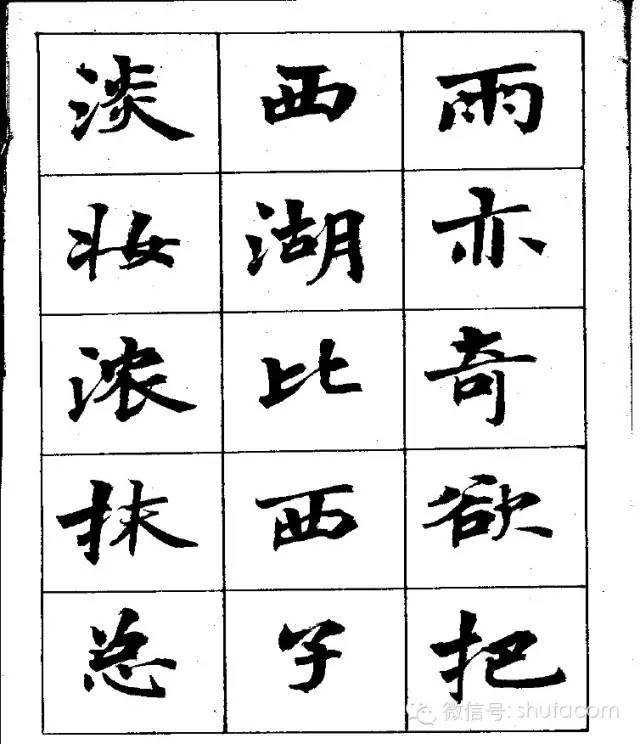 雨亦奇欲把
西湖比西子
淡妆浓抹总
微信号: shufacom